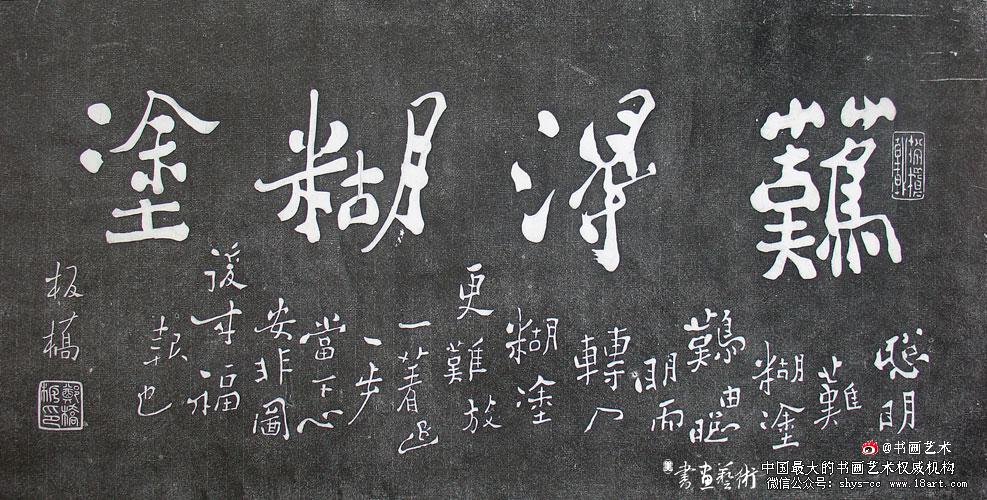 難得糊塗
聰明
難
糊塗
難由聰
明而
轉入
糊塗
更難放
一著退
一步
當下心
安非圖
後来福
報也
板橋
@书画艺术
書画藝術
中国最大的书画艺术权威机构
微信公众号: shys-cc www.18art.com